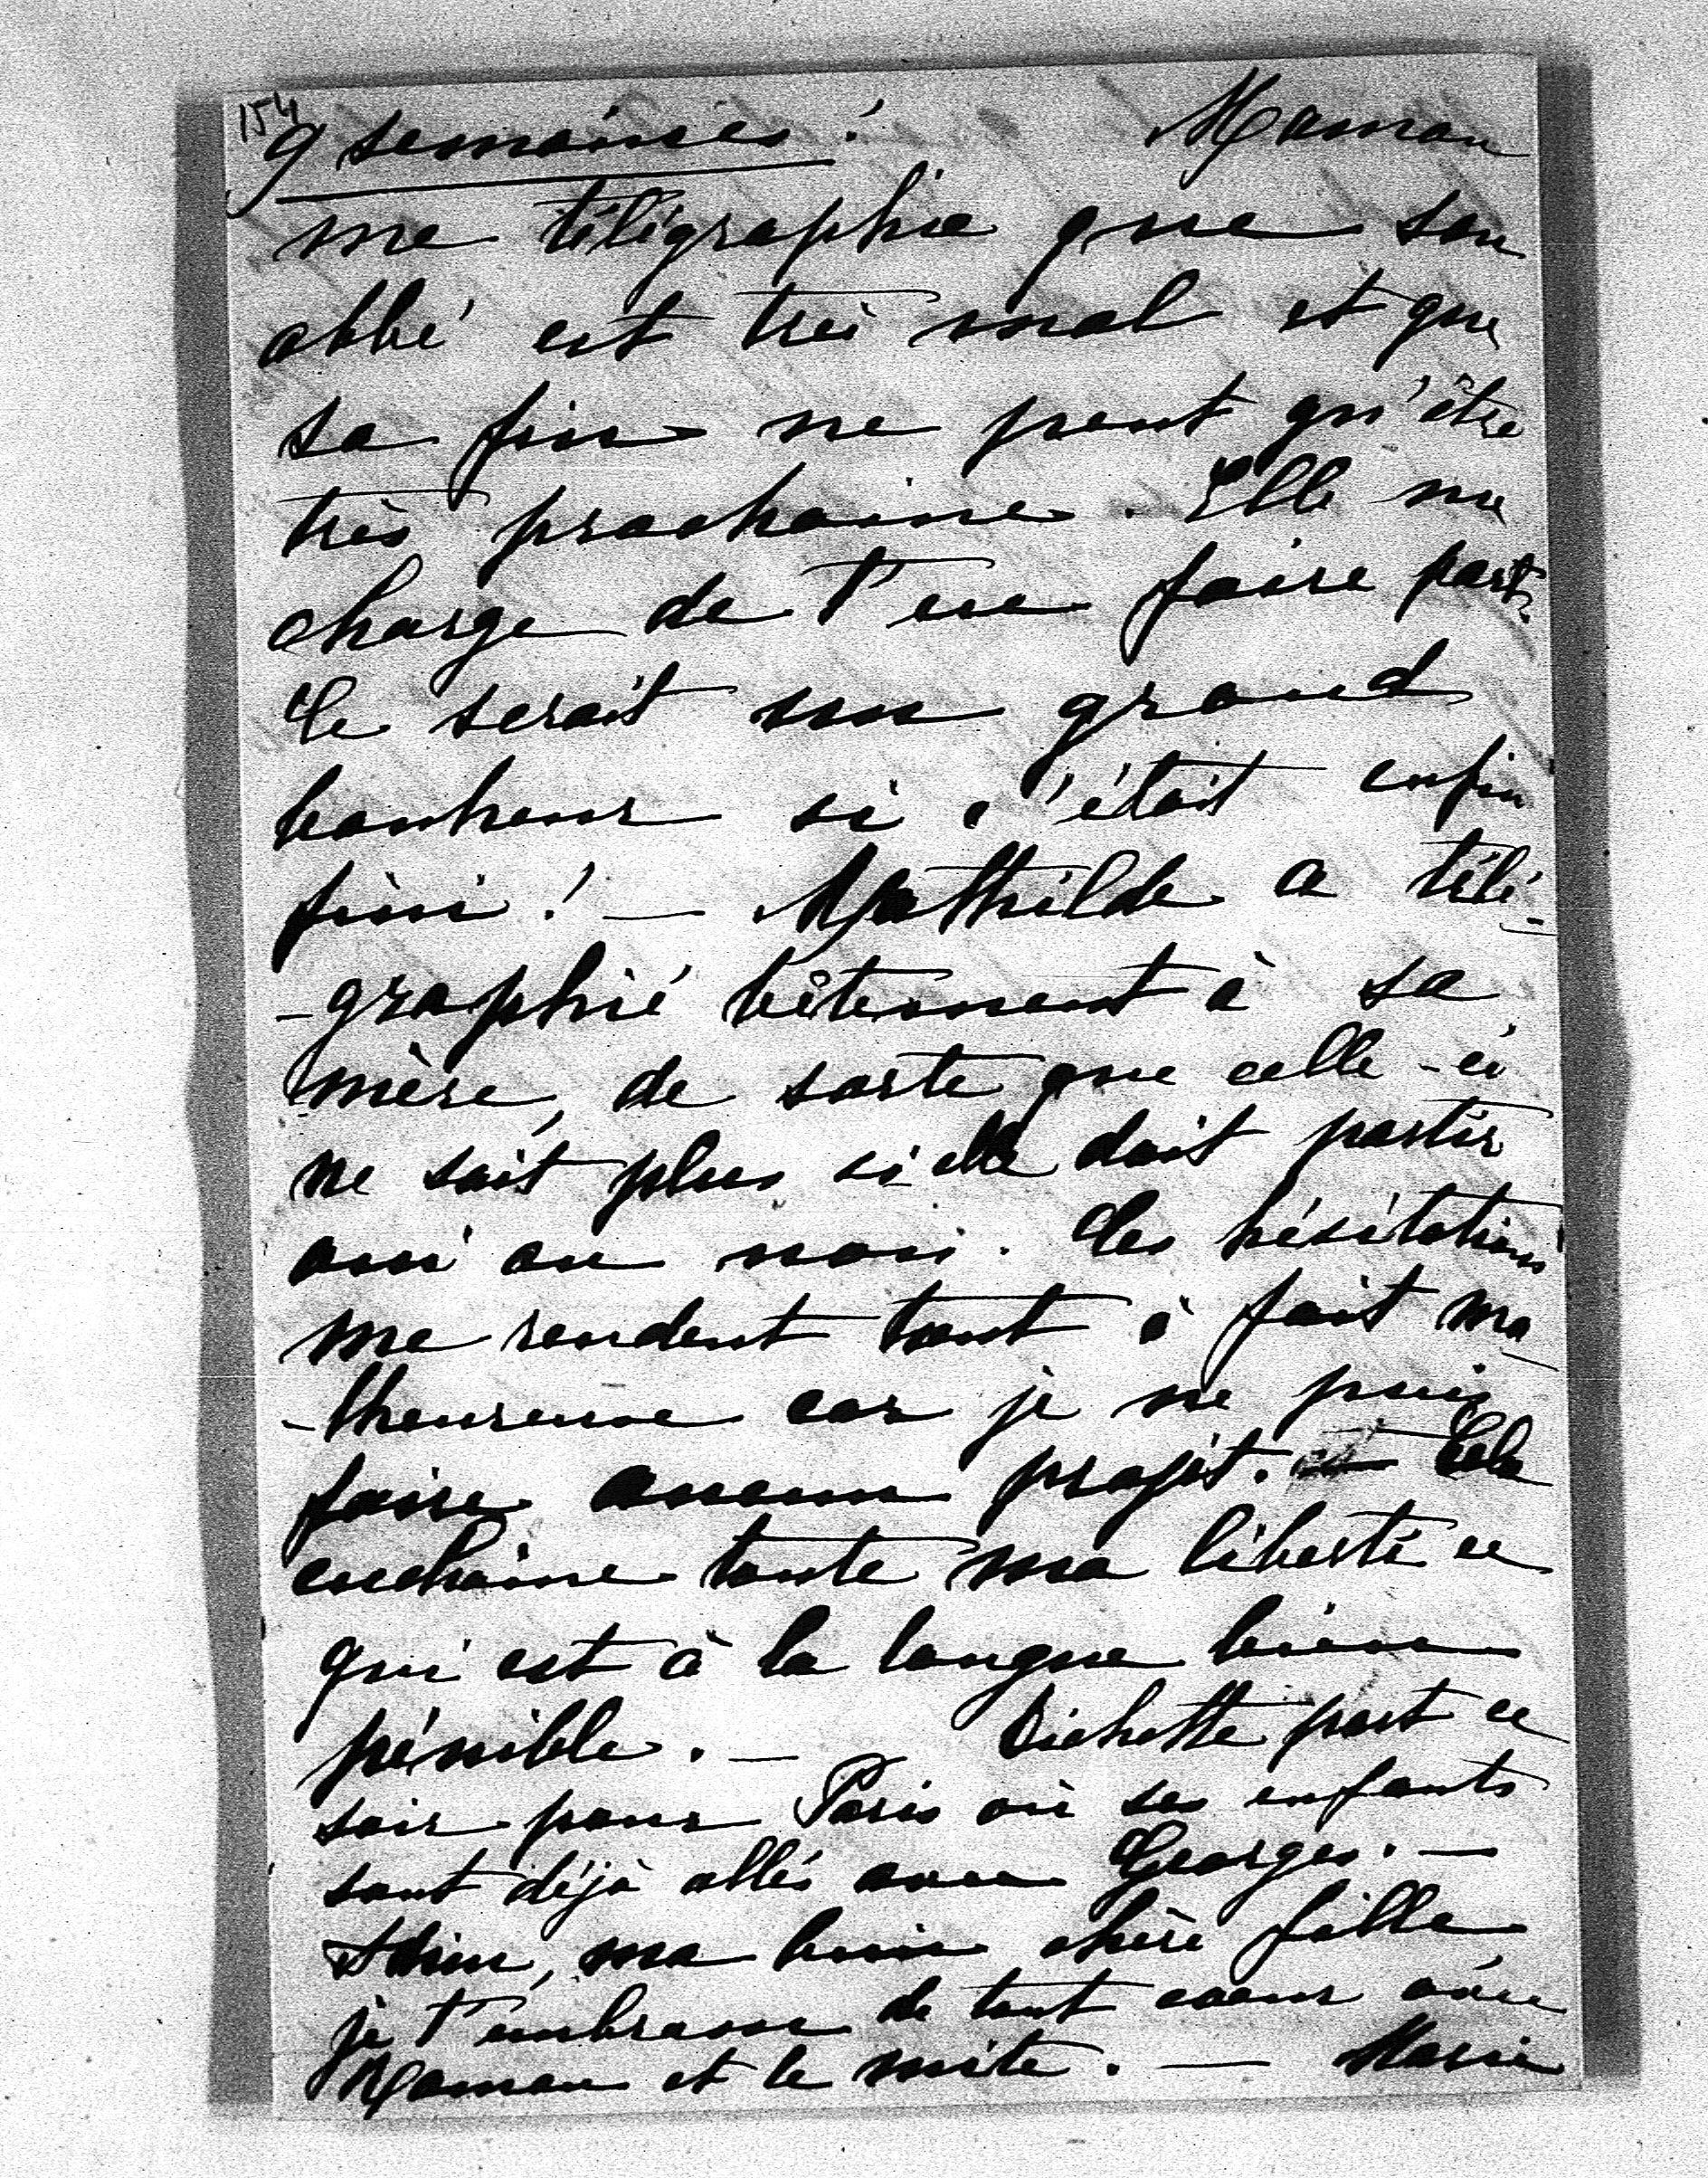 154
9 semaines ! Maman
me télégraphie que son
abbé est très mal et que
sa fin ne peut qu'être
très prochaine. Elle me
charge de t'en faire part.
Ce serait un grand
bonheur si c'était enfin
fini ! — Mathilde a télé-
-graphié bêtement à sa
mère, de sorte que celle-ci
ne sait plus si elle doit partir
oui ou non. Ces hésitations
me rendent tout à fait ma
-lheureuse car je ne puis
faire aucun projet. — Cela
enchaîne toute ma liberté ce
qui est à la longue bien
pénible. — part ce
soir pour Paris où ses enfants
sont déjà allés avec Georges. —
Adieu, ma bien chère fille
je t'embrasse de tout coeur avec
Maman et le mite. — Marie